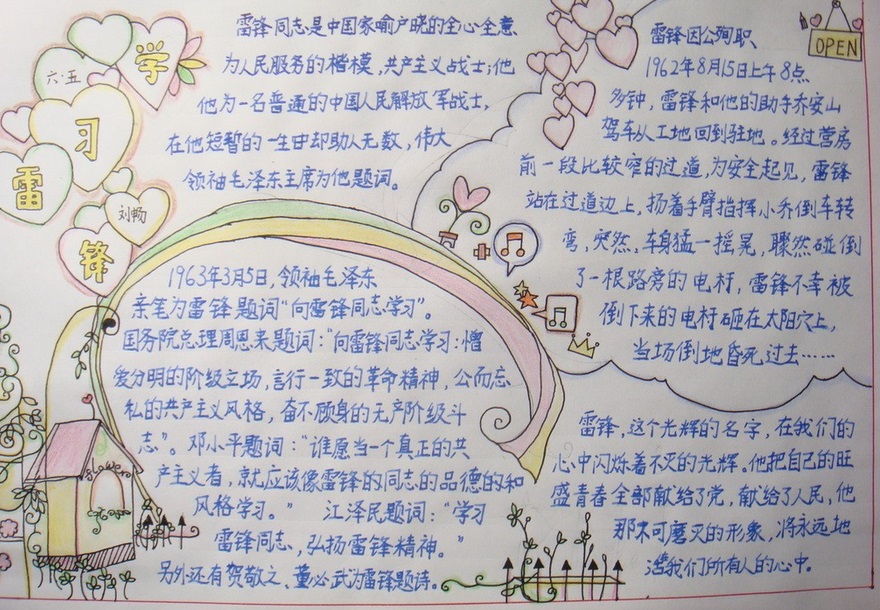 学
习
雷
锋
六·五
刘畅
雷锋同志是中国家喻户晓的全心全意
为人民服务的楷模,共产主义战士;他
他为一名普通的中国人民解放军战士,
在他短暂的一生中却助人无数,伟大
领袖毛泽东主席为他题词。
1963年3月5日,领袖毛泽东
亲笔为雷锋题词“向雷锋同志学习”。
国务院总理周恩来题词:“向雷锋同志学习:憎
爱分明的阶级立场,言行一致的革命精神,公而忘
私的共产主义风格,奋不顾身的无产阶级斗
志”。邓小平题词:“谁愿当一个真正的共
产主义者,就应该像雷锋的同志的品德的和
风格学习。” 江泽民题词:“学习
雷锋同志,弘扬雷锋精神。”
另外还有贺敬之、董必武为雷锋题诗。
OPEN
雷锋因公殉职、
1962年8月15日上午8点
多钟,雷锋和他的助手乔安山
驾车从工地回到驻地。经过营房
前一段比较窄的过道,为安全起见,雷锋
站在过道边上,扬着手臂指挥小乔倒车转
弯,突然、车身猛一摇晃,骤然碰倒
了一根路旁的电村,雷锋不幸被
倒下来的电村砸在太阳穴上,
当场倒地昏死过去……
雷锋,这个光辉的名字,在我们的
心中闪烁着不灭的光辉。他把自己的旺
盛青春全部献给了党,献给了人民,他
那不可磨灭的形象,将永远地
活我们所有人的心中。